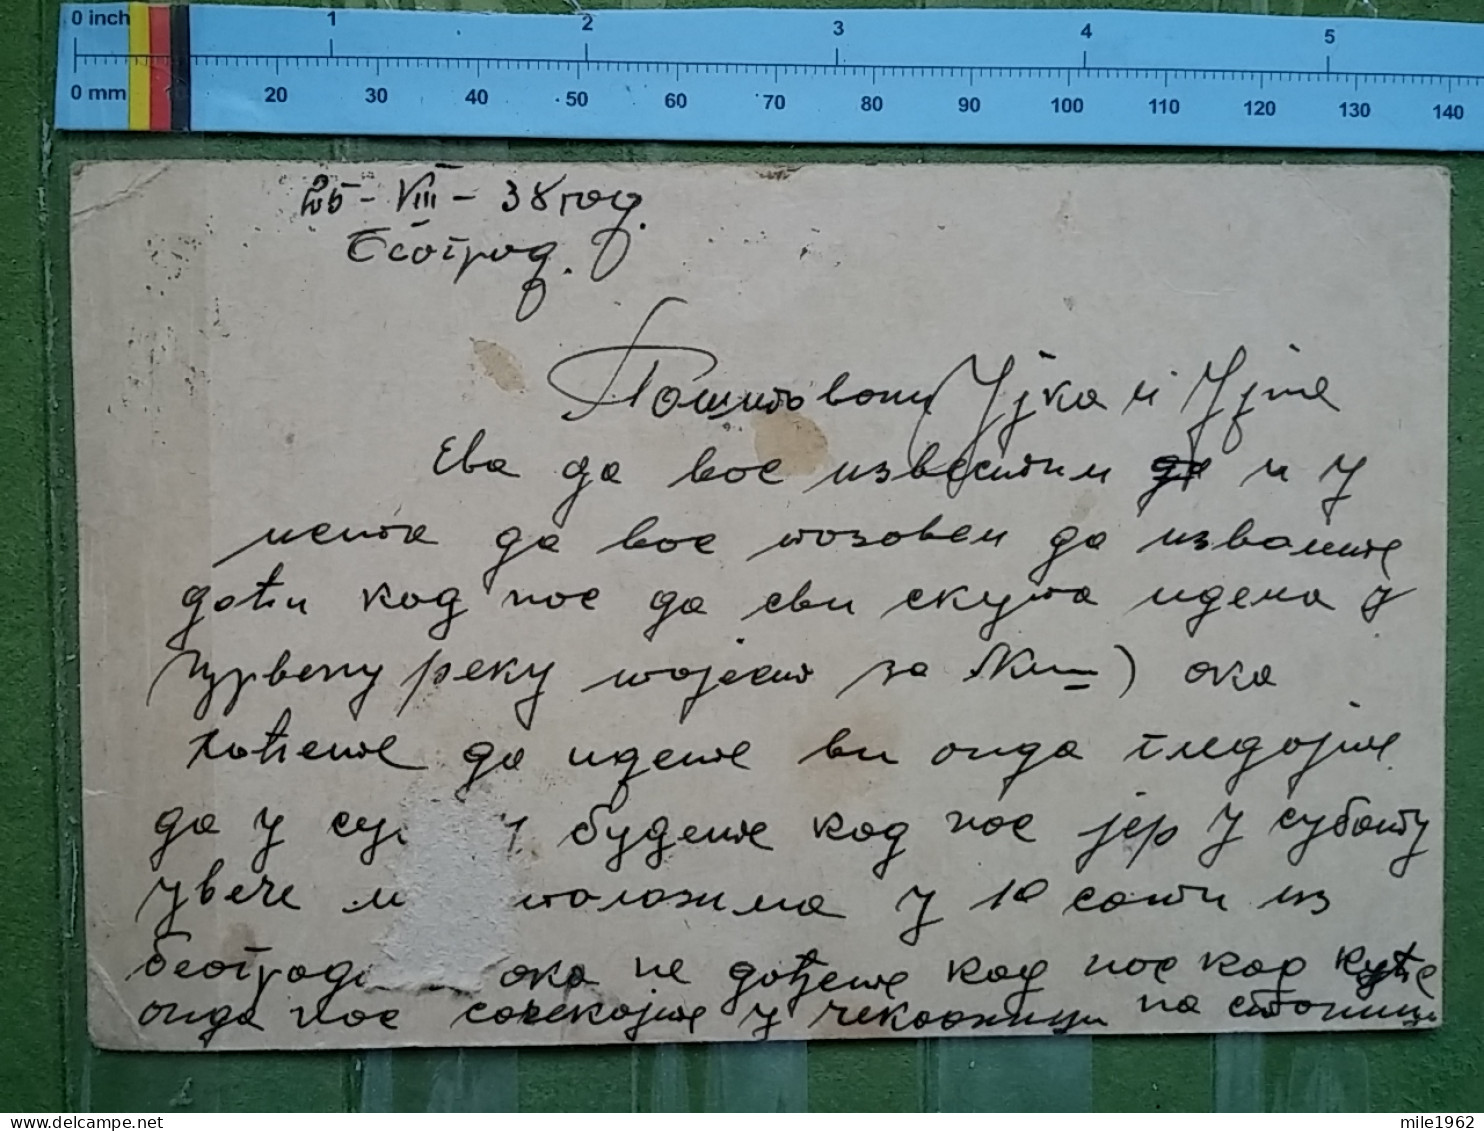 0 inch 1 2 3 4 5
0 mm 20 30 40 50 60 70 80 90 100 110 120 130 140
25-VIII-38 год.
Београд.
Поштовани Ујка и Ујна
Ева да вас известим да и у
исто да вас позовем да изволите
доћи код нас да сви скупа идемо у
Црвену реку појест за Ниш) ако
хоћете да идете ви онда гледајте
да у су у будете код нас јер у суботу
увече м полазимо у 10 сати из
Београда ако не дођете код нас код куће
онда нас сачекајте у чекаоници на станици
mile1962